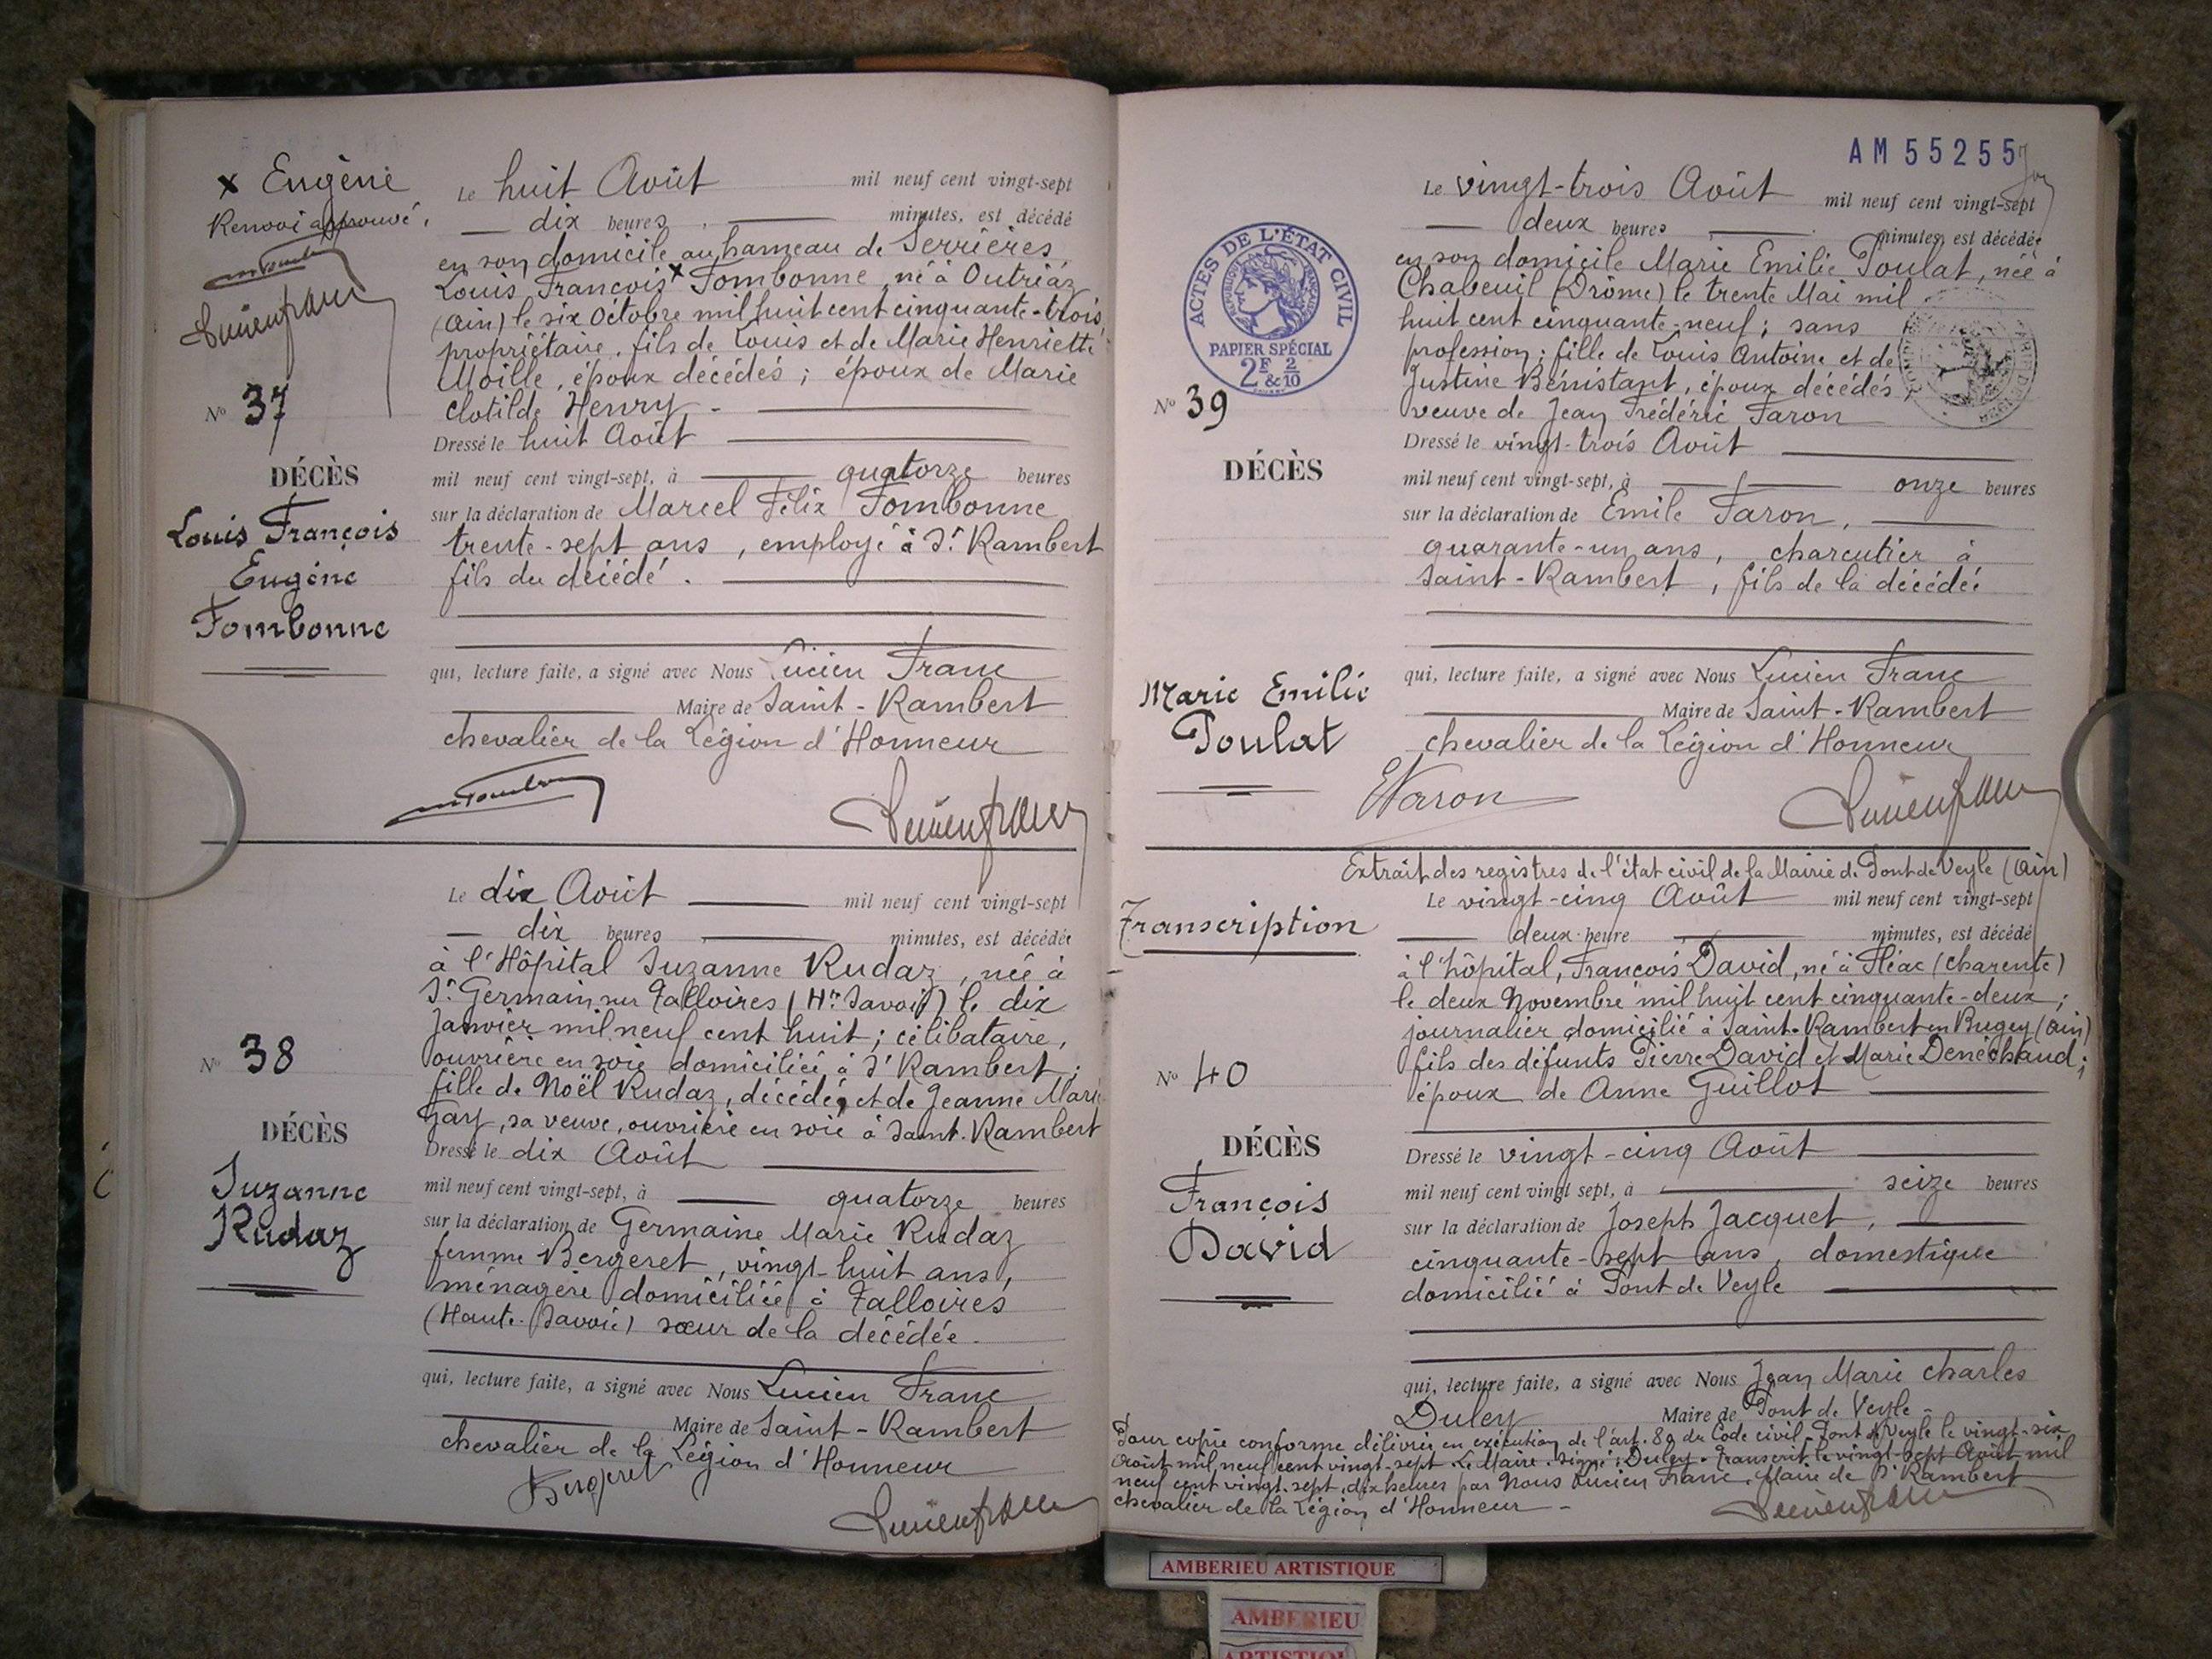 x Eugène
Renvoi approuvé.
Le huit Août mil neuf cent vingt-sept
dix heures minutes, est décédé
en son domicile au hameau de Serrières,
Louis François x Fombonne, né à Outriaz
(Ain) le six Octobre mil huit cent cinquante-trois,
propriétaire, fils de Louis et de Marie Henriette
Moille, époux décédés ; époux de Marie
Clotilde Henry.
Nº 37
DÉCÈS
Louis François
Eugène
Fombonne
Dressé le huit Août
mil neuf cent vingt-sept, à quatorze heures
sur la déclaration de Marcel Félix Fombonne
trente-sept ans, employé à St Rambert
fils du décédé.
qui, lecture faite, a signé avec Nous Lucien Franc
Maire de Saint-Rambert
chevalier de la Légion d'Honneur
Lucien Franc
Le dix Août mil neuf cent vingt-sept
dix heures minutes, est décédée
à l'Hôpital Suzanne Rudaz, née à
St Germain sur Talloires (Hte Savoie) le dix
Janvier mil neuf cent huit ; célibataire,
ouvrière en soie domiciliée à St Rambert ;
fille de Noël Rudaz, décédé, et de Jeanne Marie
Fay, sa veuve, ouvrière en soie à Saint-Rambert
Nº 38
DÉCÈS
Suzanne
Rudaz
Dressé le dix Août
mil neuf cent vingt-sept, à quatorze heures
sur la déclaration de Germaine Marie Rudaz
femme Bergeret, vingt-huit ans,
ménagère domiciliée à Talloires
(Haute-Savoie) sœur de la décédée.
qui, lecture faite, a signé avec Nous Lucien Franc
Maire de Saint-Rambert
chevalier de la Légion d'Honneur
Bergeret
Lucien Franc
AM 55255
ACTES DE L'ÉTAT CIVIL
RÉPUBLIQUE FRANÇAISE
PAPIER SPÉCIAL
2F & 2/10
Le vingt-trois Août mil neuf cent vingt-sept
deux heures minutes, est décédée
en son domicile Marie Emilie Poulat, née à
Chabeuil (Drôme) le trente Mai mil
huit cent cinquante-neuf ; sans
profession ; fille de Louis Antoine et de
Justine Bénistant, époux décédés,
veuve de Jean Frédéric Faron
Nº 39
DÉCÈS
Marie Emilie
Poulat
Dressé le vingt-trois Août
mil neuf cent vingt-sept, à onze heures
sur la déclaration de Emile Faron,
quarante-un ans, charcutier à
Saint-Rambert, fils de la décédée
qui, lecture faite, a signé avec Nous Lucien Franc
Maire de Saint-Rambert
chevalier de la Légion d'Honneur
E Faron
Lucien Franc
Extrait des registres de l'état civil de la Mairie de Pont de Veyle (Ain)
Transcription
Le vingt-cinq Août mil neuf cent vingt-sept
deux heure minutes, est décédé
à l'hôpital, François David, né à Fléac (Charente)
le deux Novembre mil huit cent cinquante-deux ;
journalier domicilié à Saint-Rambert en Bugey (Ain)
fils des défunts Pierre David et Marie Denéchaud ;
époux de Anne Guillot
Nº 40
DÉCÈS
François
David
Dressé le vingt-cinq Août
mil neuf cent vingt sept, à seize heures
sur la déclaration de Joseph Jacquet,
cinquante-sept ans, domestique
domicilié à Pont de Veyle
qui, lecture faite, a signé avec Nous Jean Marie Charles
Duley Maire de Pont de Veyle -
Pour copie conforme délivrée en exécution de l'art. 80 du Code civil - Pont de Veyle le vingt-six
Août mil neuf cent vingt-sept Le Maire. Signé : Duley. Transcrit le vingt-sept Août mil
neuf cent vingt-sept, dix heures par Nous Lucien Franc, Maire de St Rambert
chevalier de la Légion d'Honneur -
Lucien Franc
AMBERIEU ARTISTIQUE
AMBERIEU
ARTISTIQUE